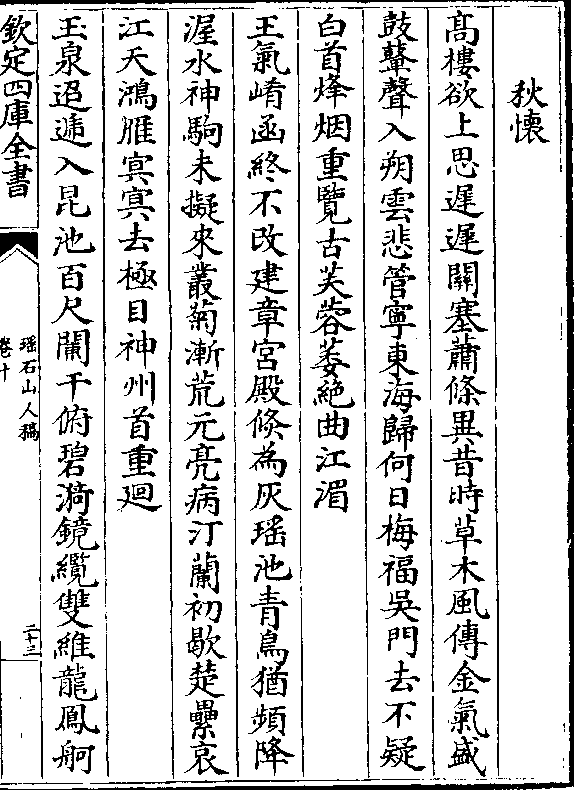 秋懷
髙樓欲上思遲遲關塞蕭條異昔時草木風傳金氣盛
鼓鼙聲入朔雲悲管寧東海歸何日梅福吳門去不疑
白首烽烟重覽古芙蓉萎絶曲江湄
王氣崤函終不改建章宮殿倐為灰瑶池青鳥猶頻降
渥水神駒未擬來叢菊漸荒元亮病汀蘭初歇楚纍哀
江天鴻雁㝠㝠去極目神州首重廻
玉泉迢遞入昆池百尺闌干俯碧漪鏡纜雙維龍鳳舸
欽定四庫全書
瑶石山人稿
卷十
二十三